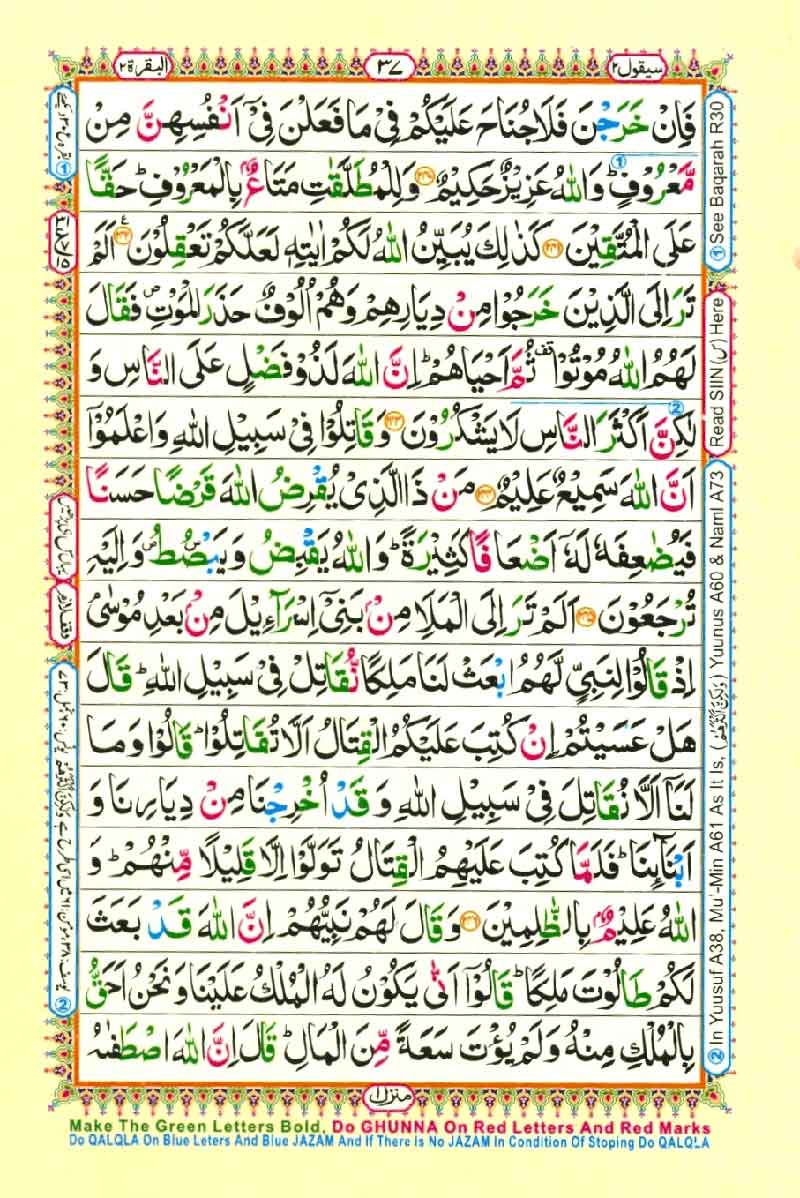 سيقول ٢
٣٧
البقرة ٢
فَاِنْ خَرَجْنَ فَلَا جُنَاحَ عَلَيْكُمْ فِيْ مَا فَعَلْنَ فِيْٓ اَنْفُسِهِنَّ مِنْ
مَّعْرُوْفٍؕ وَاللّٰهُ عَزِيْزٌ حَكِيْمٌ ﴿٢٤٠﴾ وَلِلْمُطَلَّقٰتِ مَتَاعٌۢ بِالْمَعْرُوْفِؕ حَقًّا
عَلَى الْمُتَّقِيْنَ ﴿٢٤١﴾ كَذٰلِكَ يُبَيِّنُ اللّٰهُ لَكُمْ اٰيٰتِهٖ لَعَلَّكُمْ تَعْقِلُوْنَ ﴿٢٤٢﴾ اَلَمْ
تَرَ اِلَى الَّذِيْنَ خَرَجُوْا مِنْ دِيَارِهِمْ وَهُمْ اُلُوْفٌ حَذَرَ الْمَوْتِ فَقَالَ
لَهُمُ اللّٰهُ مُوْتُوْا ثُمَّ اَحْيَاهُمْؕ اِنَّ اللّٰهَ لَذُوْ فَضْلٍ عَلَى النَّاسِ وَ
لٰكِنَّ اَكْثَرَ النَّاسِ لَا يَشْكُرُوْنَ ﴿٢٤٣﴾ وَقَاتِلُوْا فِيْ سَبِيْلِ اللّٰهِ وَاعْلَمُوْٓا
اَنَّ اللّٰهَ سَمِيْعٌ عَلِيْمٌ ﴿٢٤٤﴾ مَنْ ذَا الَّذِيْ يُقْرِضُ اللّٰهَ قَرْضًا حَسَنًا
فَيُضٰعِفَهٗ لَهٗٓ اَضْعَافًا كَثِيْرَةًؕ وَاللّٰهُ يَقْبِضُ وَيَبْصُۜطُ وَاِلَيْهِ
تُرْجَعُوْنَ ﴿٢٤٥﴾ اَلَمْ تَرَ اِلَى الْمَلَاِ مِنْۢ بَنِيْٓ اِسْرَآءِيْلَ مِنْۢ بَعْدِ مُوْسٰى
اِذْ قَالُوْا لِنَبِيٍّ لَّهُمُ ابْعَثْ لَنَا مَلِكًا نُّقَاتِلْ فِيْ سَبِيْلِ اللّٰهِؕ قَالَ
هَلْ عَسَيْتُمْ اِنْ كُتِبَ عَلَيْكُمُ الْقِتَالُ اَلَّا تُقَاتِلُوْاؕ قَالُوْا وَمَا
لَنَآ اَلَّا نُقَاتِلَ فِيْ سَبِيْلِ اللّٰهِ وَقَدْ اُخْرِجْنَا مِنْ دِيَارِنَا وَ
اَبْنَآئِنَاؕ فَلَمَّا كُتِبَ عَلَيْهِمُ الْقِتَالُ تَوَلَّوْا اِلَّا قَلِيْلًا مِّنْهُمْؕ وَ
اللّٰهُ عَلِيْمٌۢ بِالظّٰلِمِيْنَ ﴿٢٤٦﴾ وَقَالَ لَهُمْ نَبِيُّهُمْ اِنَّ اللّٰهَ قَدْ بَعَثَ
لَكُمْ طَالُوْتَ مَلِكًاؕ قَالُوْٓا اَنّٰى يَكُوْنُ لَهُ الْمُلْكُ عَلَيْنَا وَنَحْنُ اَحَقُّ
بِالْمُلْكِ مِنْهُ وَلَمْ يُؤْتَ سَعَةً مِّنَ الْمَالِؕ قَالَ اِنَّ اللّٰهَ اصْطَفٰىهُ
منزل ١
① See Baqarah R30
Read SIIN (س) Here
② In Yuusuf A38, Mu'-Min A61 As It Is, (وَلٰكِنَّ اَكْثَرَهُمْ) Yuunus A60 & Naml A73
Make The Green Letters Bold, Do GHUNNA On Red Letters And Red Marks
Do QALQLA On Blue Leters And Blue JAZAM And If There Is No JAZAM In Condition Of Stoping Do QALQLA